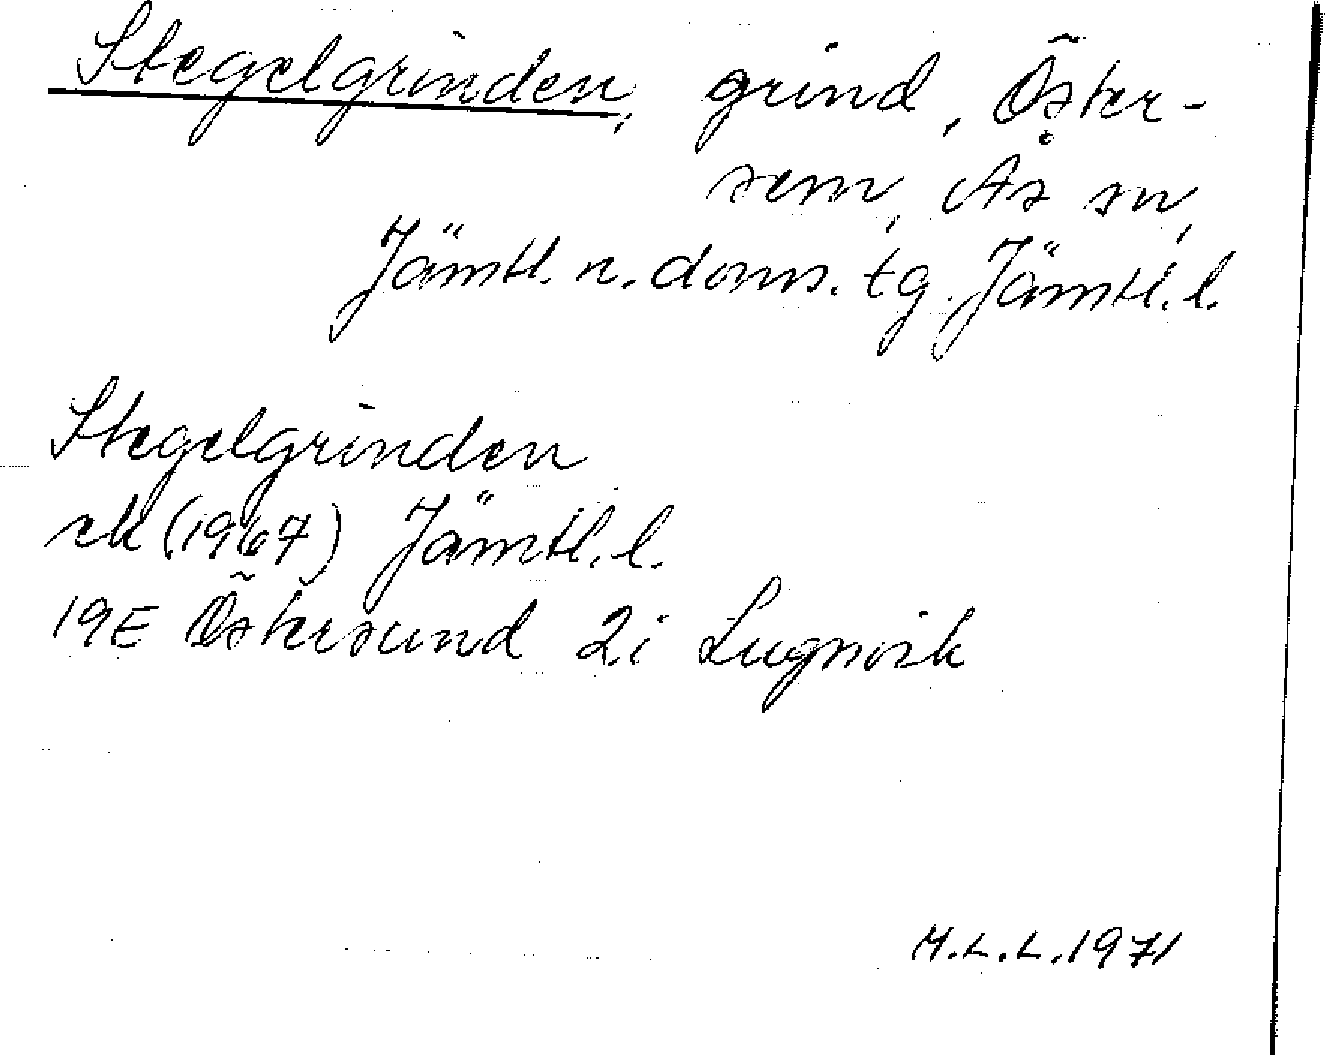 Stegelgrinden, grind, Öster-
sem, Ås sn,
Jämtl. n. doms. tg. Jämtl. l.
Stegelgrinden
ek (1967) Jämtl. l.
19E Östersund 2i Lugnvik
M.L.L. 1971